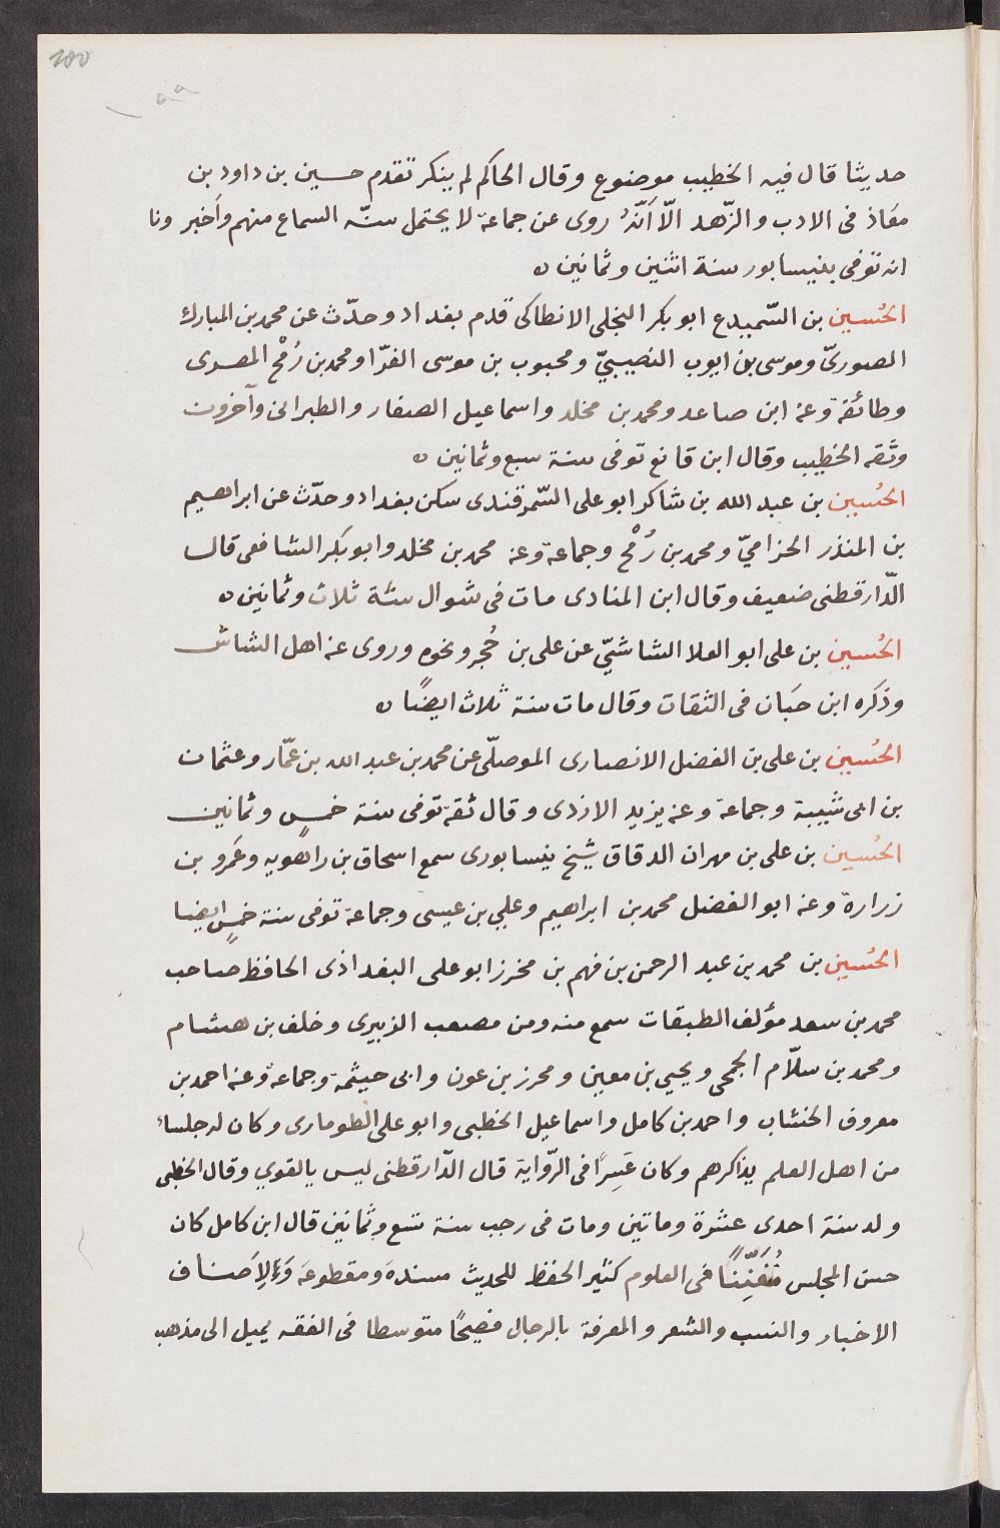 100
٩٩
حديثا قال فيه الخطيب موضوع وقال الحاكم لم ينكر تقدم حسين بن داود بن
معَاذ فى الادب والزّهد الّا اَنّهُ روى عن جماعة لا يحتمل سنّه السماع منهم وأخبر ونا
انه توفى بنيسابور سنة اثنين وثمانين ه
الحُسين بن السّميدع ابو بكر البجلى الانطاكى قدم بغداد وحدّث عن محمد بن المبارك
الصورىّ وموسى بن ايوب النصيبيّ ومحبوب بن موسى الفرّا ومحمد بن رُمْح المصرى
وطائفة وعنه ابن صاعد ومحمد بن مخلد واسماعيل الصفار والطبرانى وآخرون
وثقه الخطيب وقال ابن قانع توفى سنة سبع وثمانين ه
الحُسين بن عبد الله بن شاكر ابو على السّمرقندى سكن بغداد وحدّث عن ابراهيم
بن المنذر الحزاميّ ومحمد بن رُمْح وجماعة وعنه محمد بن مخلد وابو بكر الشافعى قال
الدّارقطنى ضعيف وقال ابن المنادى مات فى شوال سنة ثلاث وثمانين ه
الحُسين بن على ابو العلا الشاشيّ عن على بن حُجر ونحوه وروى عنه اهل الشاش
وذكره ابن حبَان فى الثقات وقال مات سنة ثلاث ايضًا ه
الحُسين بن على بن الفضل الانصارى الموصلّى عن محمد بن عبد الله بن عمّار وعثمان
بن ابى شيبة وجماعة وعنه يزيد الازدى وقال ثقة توفى سنة خمسٍ وثمانين
الحُسين بن على بن مهران الدقاق شيخ نيسابورى سمع اسحاق بن راهويه وعَمرو بن
زرارة وعنه ابو الفضل محمد بن ابراهيم وعلي بن عيسى وجماعة توفى سنة خمسٍ ايضا
الحُسين بن محمد بن عبد الرحمن بن فهم بن محرز ابو على البغداذى الحافظ صاحب
محمد بن سعد مؤلف الطبقات سمع منه ومن مصعب الزبيرى وخلف بن هشام
ومحمد بن سلاّم الجمحى ويحيي بن معين ومحرز بن عون وابى حيثمة وجماعة وعنه احمد بن
معروف الخشاب واحمد بن كامل واسماعيل الخطبى وابو على الطومارى وكان له جلساء
من اهل العلم يذاكرهم وكان عَسِرًا فى الرّواية قال الدّارقطنى ليس بالقوي وقال الخطبى
ولد سنة احدى عشرة وماتين ومات فى رجب سنة تسع وثمانين قال ابن كامل كان
حسن المجلس مُتفَنِّنًا فى العلوم كثير الحفظ للحديث مسندهَ ومقطوعَه ولِاَصناف
الاخبار والنسب والشعر والمعرفة بالرجال فصيحًا متوسطا فى الفقه يميل الى مذهب